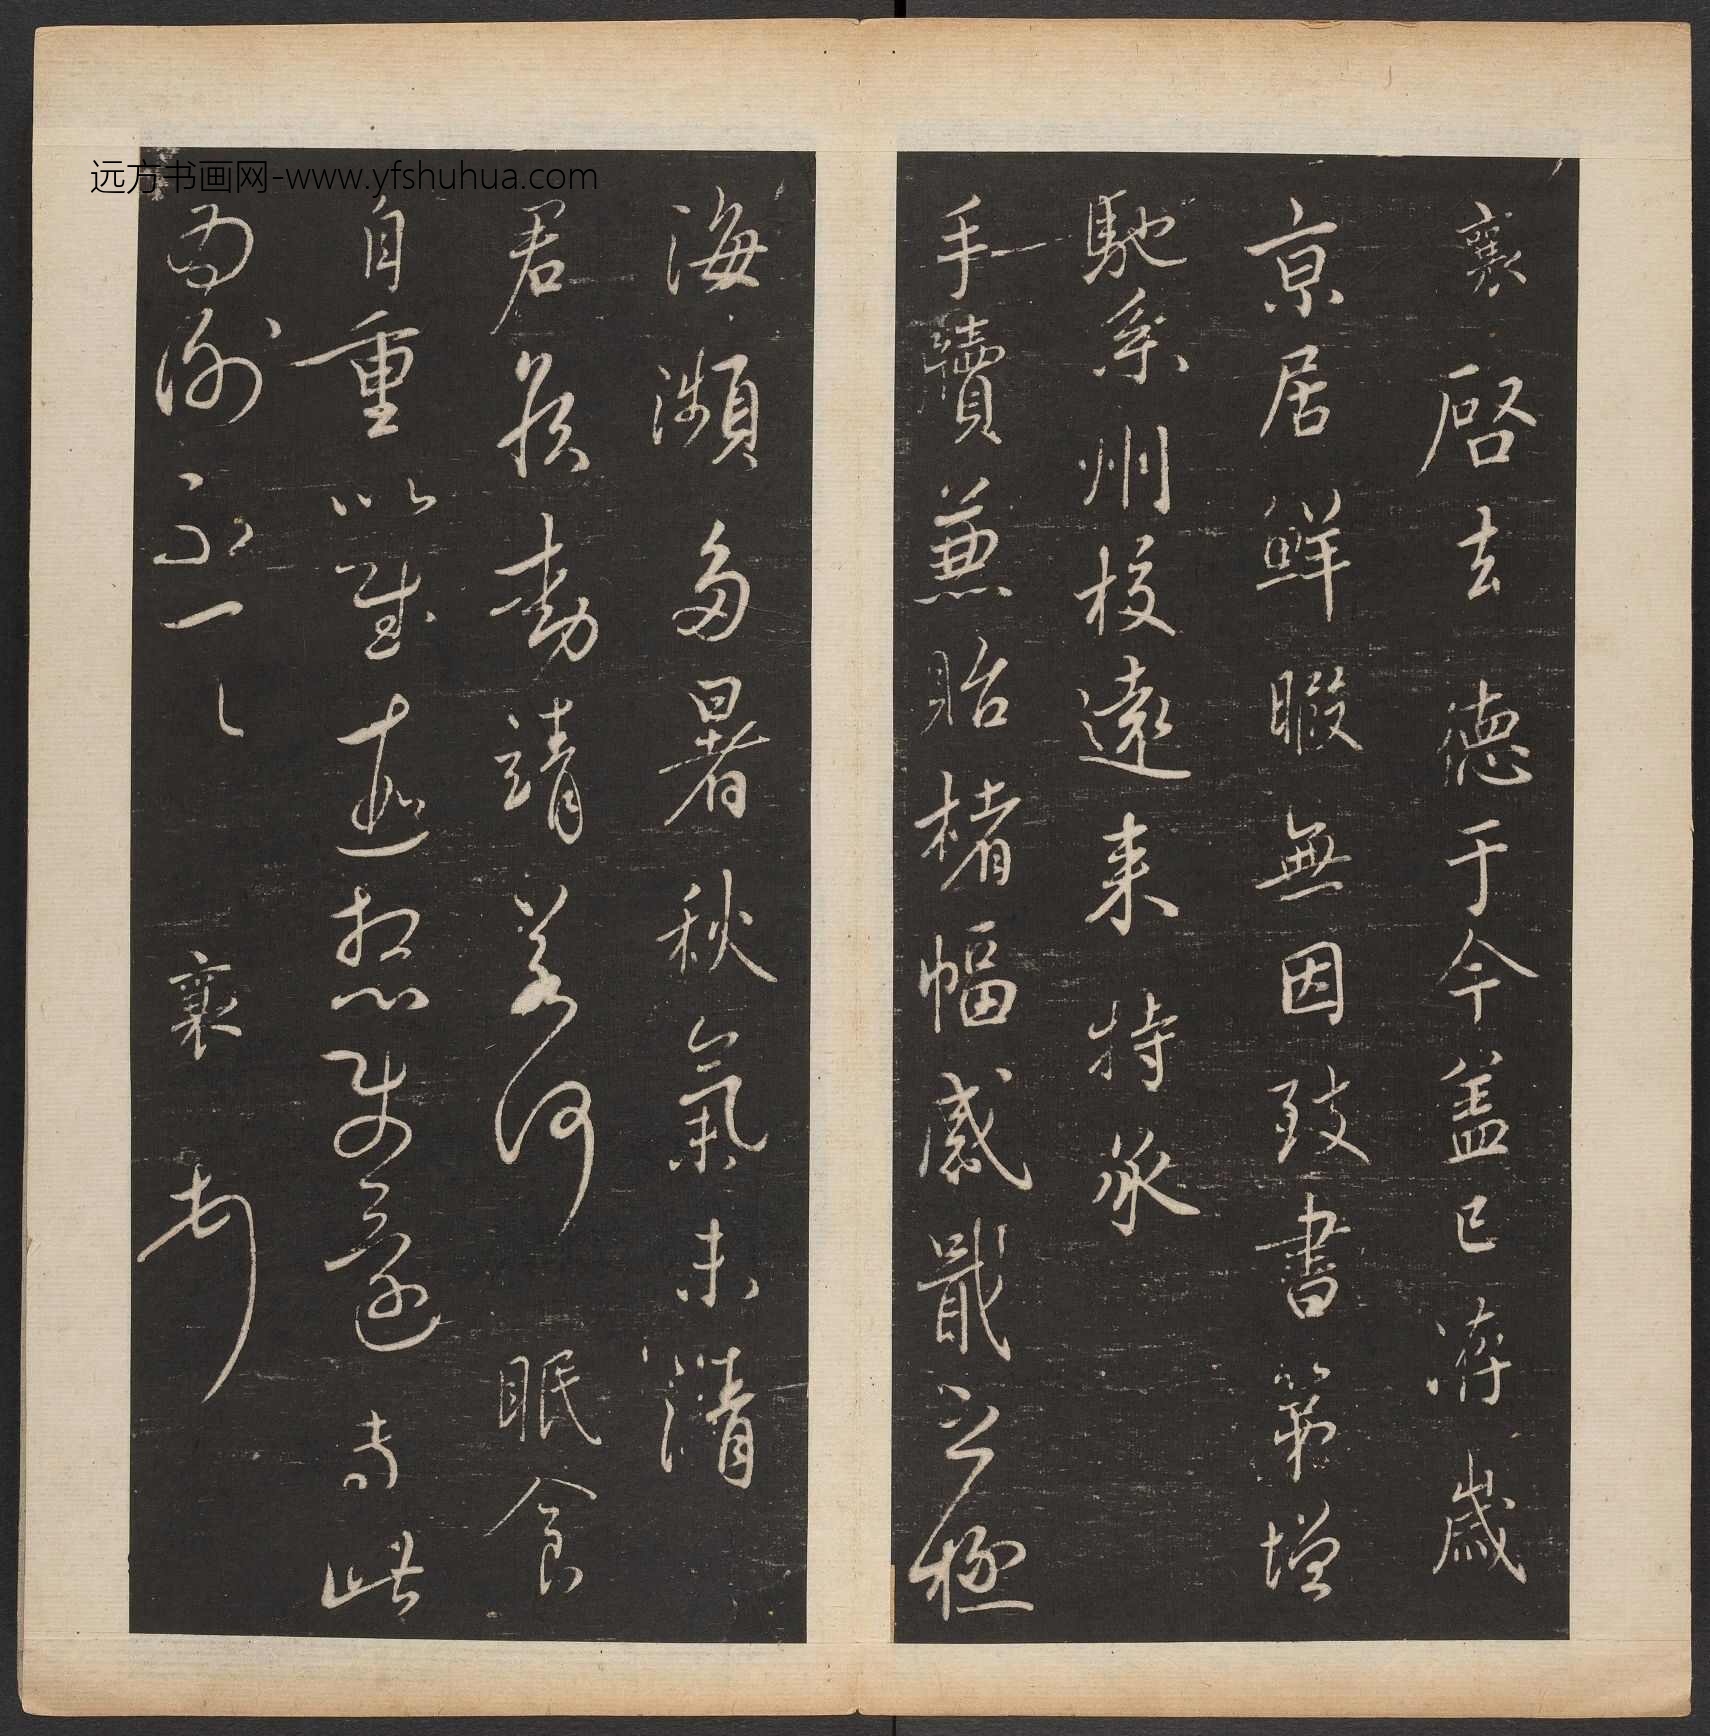 襄啓去德于今盖已涛歲
京居鮮暇無因致書第增
馳系州校遠來特承
手牘兼貽楮幅感戢之極
海瀕多暑秋氣未清
君侯動靖若何眠食
自重以慰遠想賜還專此
為謝不一々襄頓
远方书画网-www.yfshuhua.com